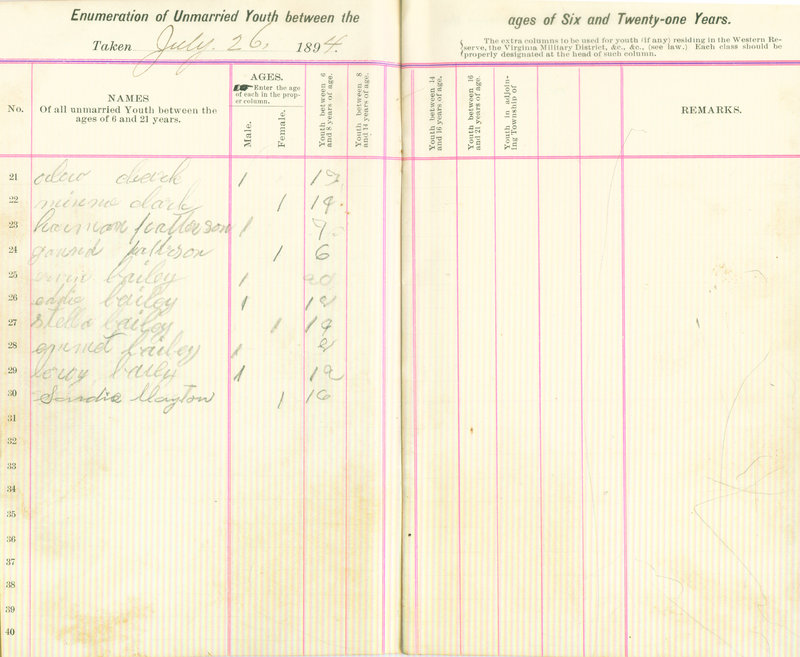 Enumeration of Unmarried Youth between the ages of Six and Twenty-one Years.
Taken July. 26, 1894.
The extra columns to be used for youth (if any) residing in the Western Re-
serve, the Virginia Military District, &c., &c., (see law.) Each class should be
properly designated at the head of such column.
No.
NAMES
Of all unmarried Youth between the
ages of 6 and 21 years.
AGES.
Enter the age
of each in the prop-
er column.
Male.
Female.
Youth between 6
and 8 years of age.
Youth between 8
and 14 years of age.
Youth between 14
and 16 years of age.
Youth between 16
and 21 years of age.
Youth in adjoin-
ing Township of
REMARKS.
21 1
22 minnie clark 1 14
23 patterson 1 9
24 1 6
25 bailey 1 20
26 eddie bailey 1 12
27 stella bailey 1
28 emmet bailey 1
29 1 12
30 Clayton 1 16
31
32
33
34
35
36
37
38
39
40